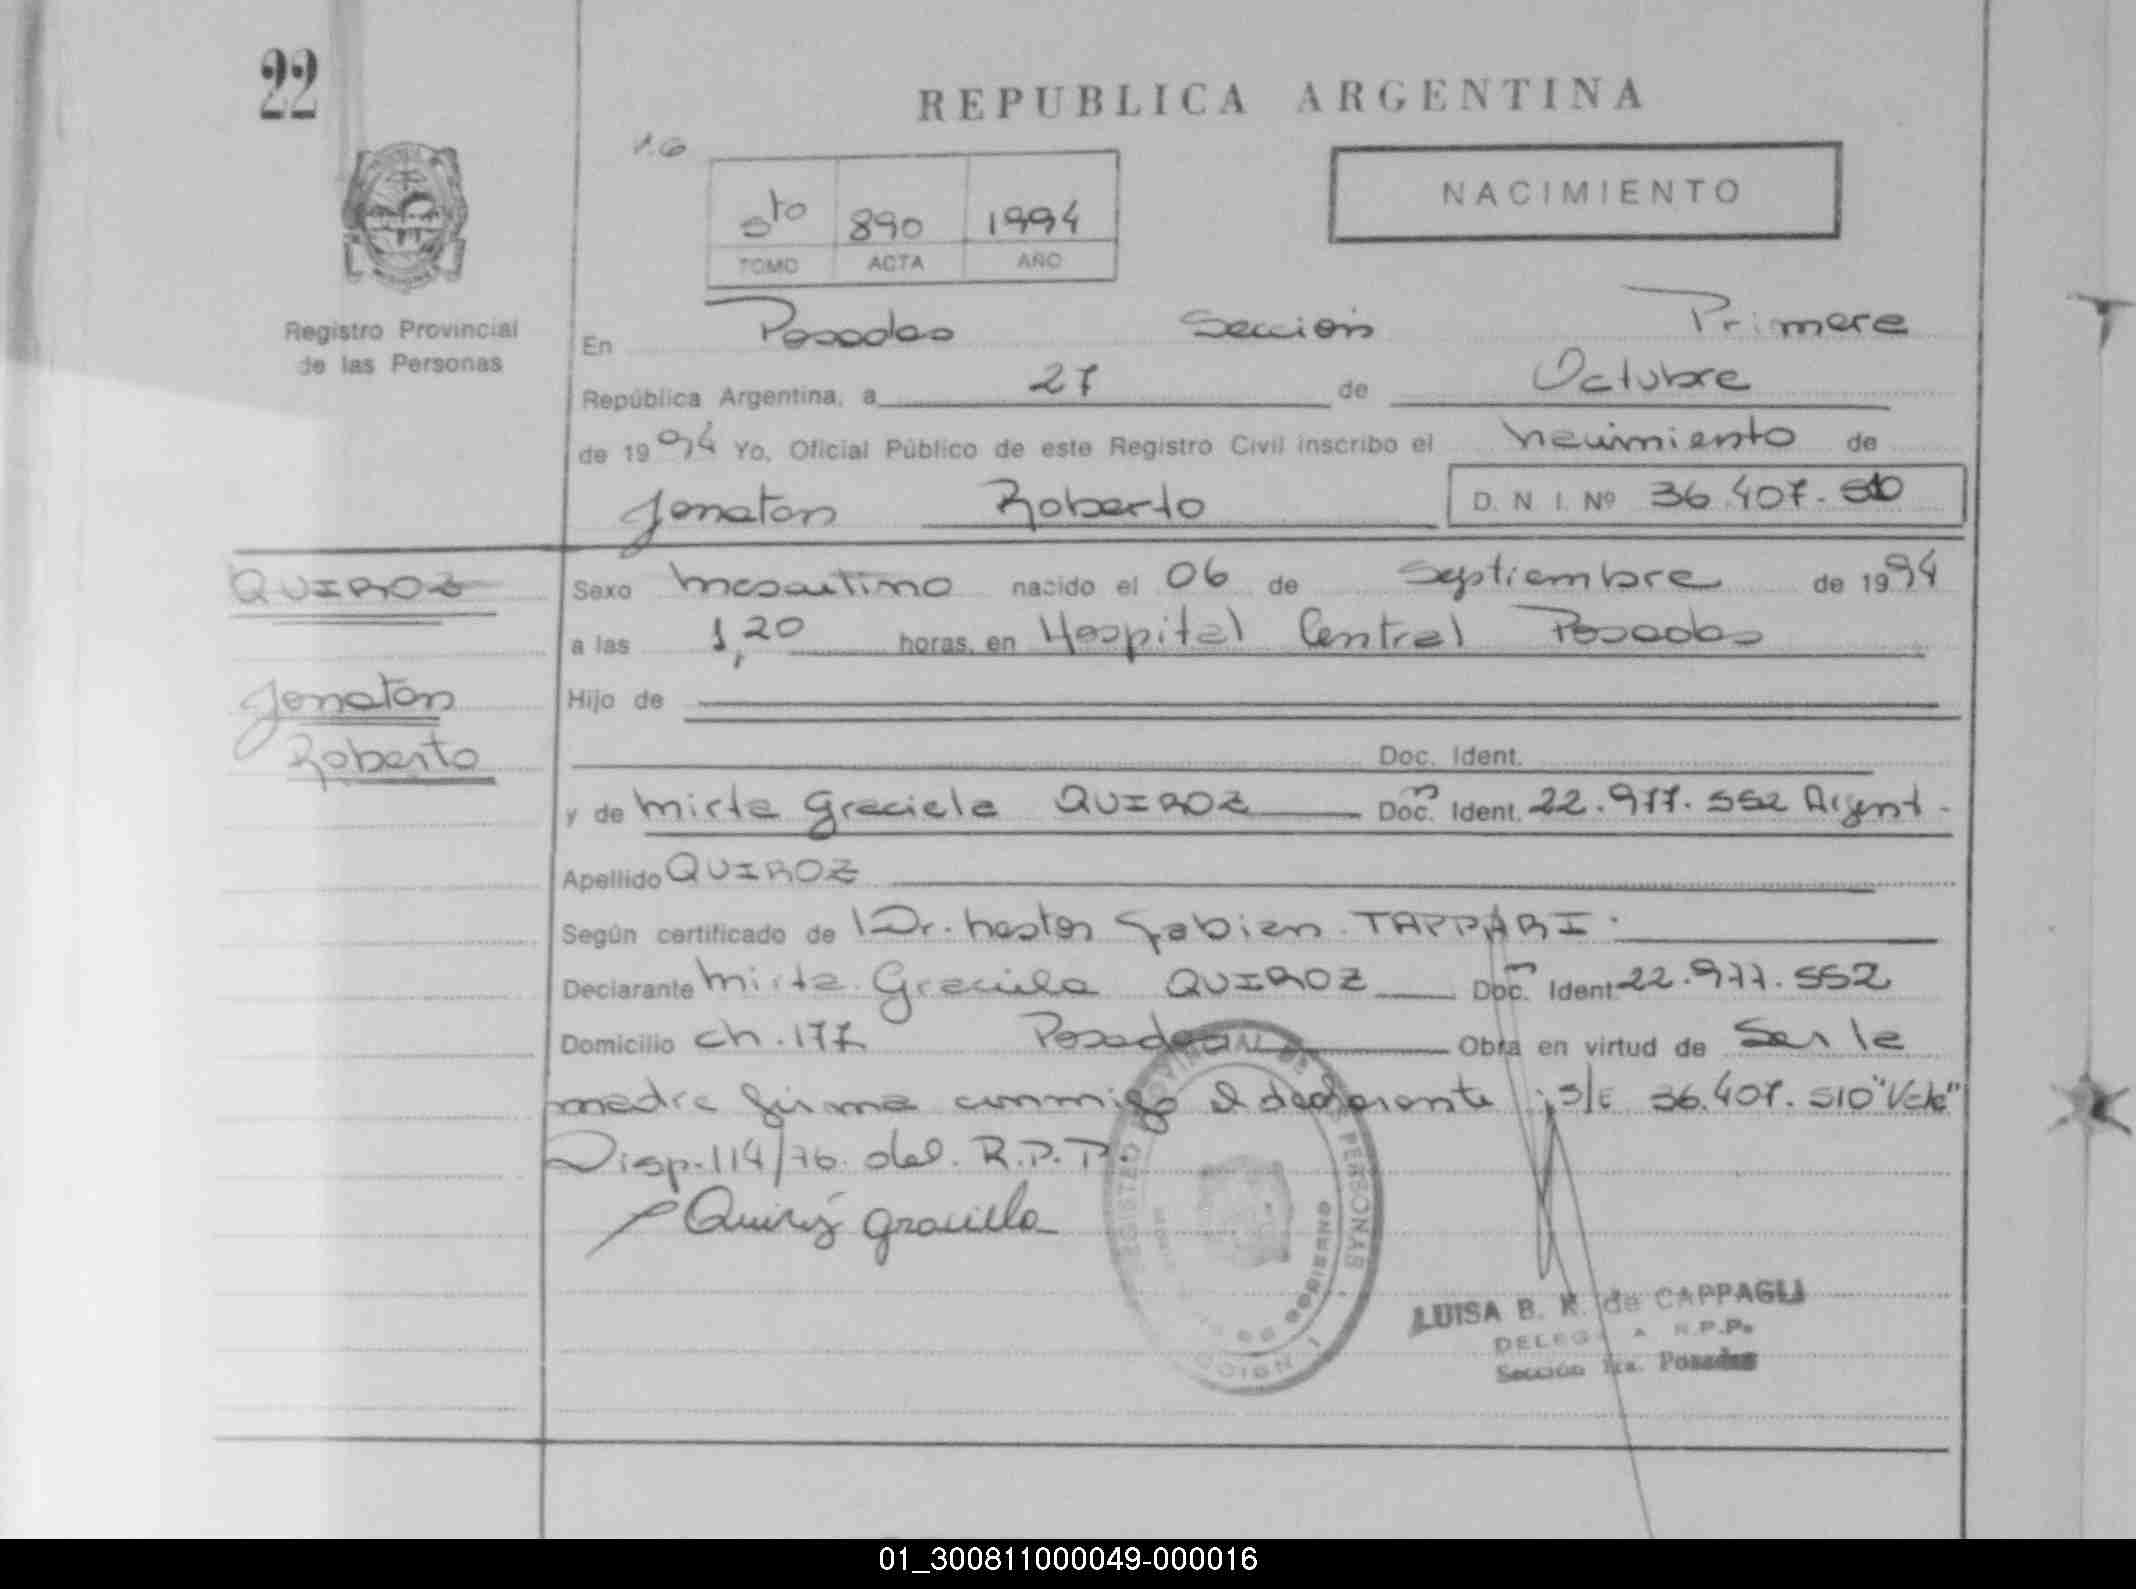 22
REPUBLICA ARGENTINA
1.6
5to 890 1994
TOMO ACTA AÑO
NACIMIENTO
Registro Provincial
de las Personas
En Posadas Sección Primera
República Argentina, a 27 de Octubre
de 1994 Yo, Oficial Público de este Registro Civil inscribo el nacimiento de
Jonatan Roberto D. N. I. Nº 36.407.510
QUIROZ
Jonatan
Roberto
Sexo masculino nacido el 06 de Septiembre de 1994
a las 1,20 horas, en Hospital Central Posadas
Hijo de
Doc. Ident.
y de Mirta Graciela QUIROZ Doc. Ident. 22.977.552 Argent.
Apellido QUIROZ
Según certificado de Dr. Nestor Fabian TAPPARI.
Declarante Mirta Graciela QUIROZ Doc. Ident. 22.977.552
Domicilio ch. 177 Posadas Obra en virtud de Ser la
madre firma conmigo el declarante ; s/e 36.407.510 "Vale"
Disp. 114/76. del. R.P.P.
Quiroz Graciela
REGISTRO PROVINCIAL DE LAS PERSONAS
LUISA B. K. de CAPPAGLI
DELEGADA R.P.P.
Sección 1ra. Posadas
01_300811000049-000016